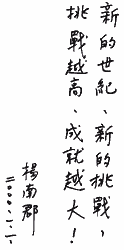 新的世紀、新的挑戰，
挑戰越高、成就越大！
楊南郡
二○○○、一、一